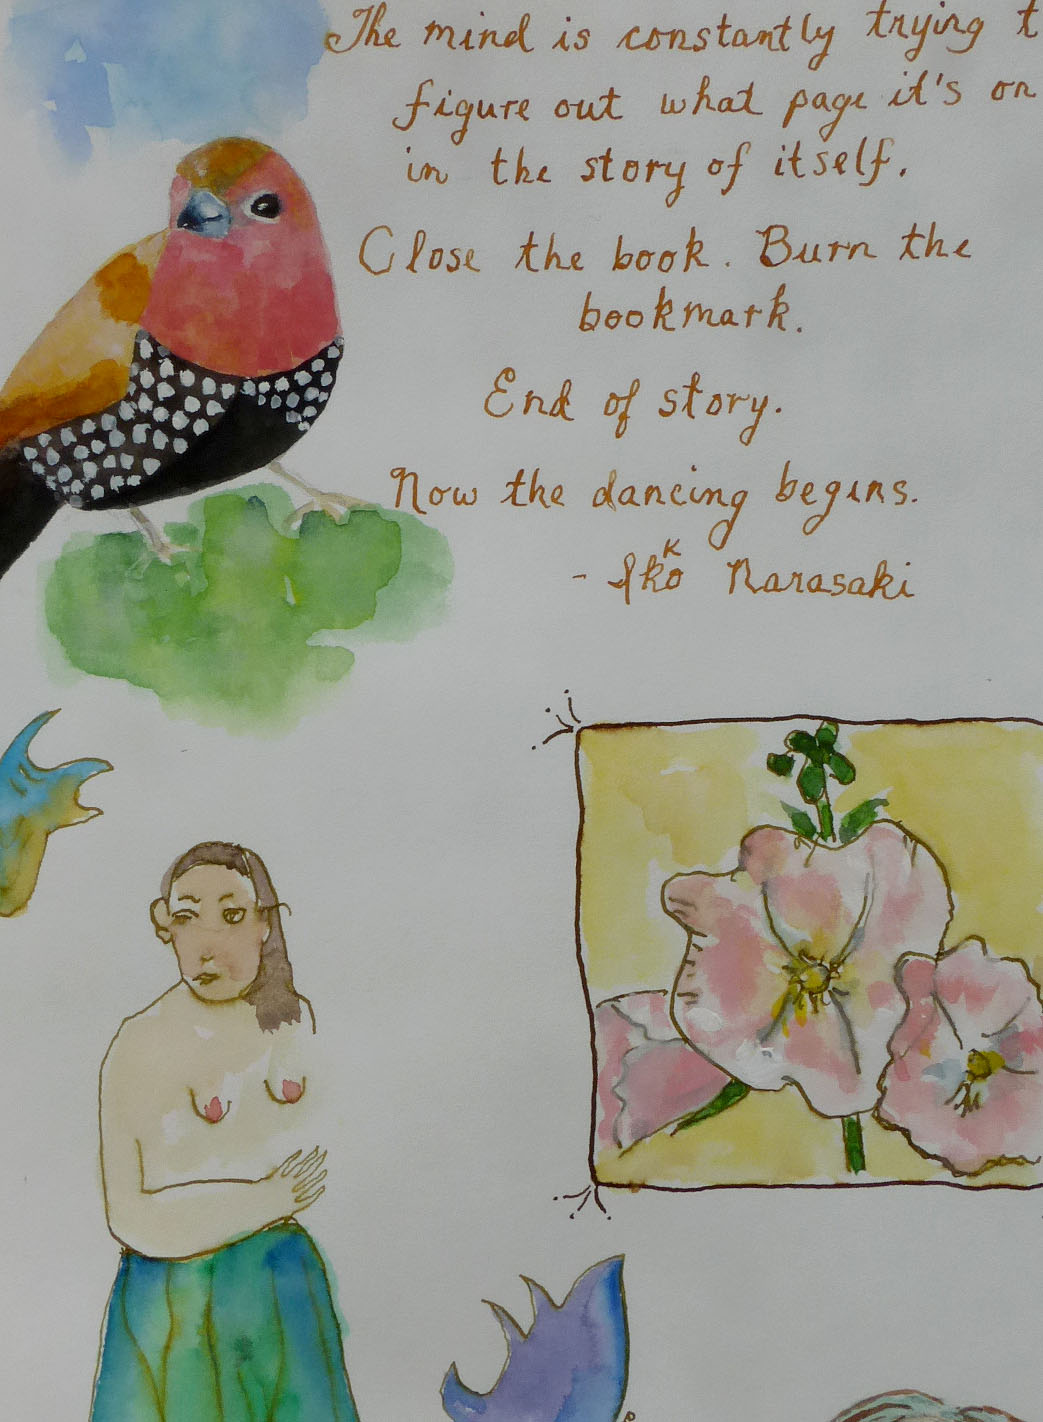 The mind is constantly trying t
figure out what page it's on
in the story of itself.
Close the book. Burn the
bookmark.
End of story.
Now the dancing begins.
- Ikkō Narasaki